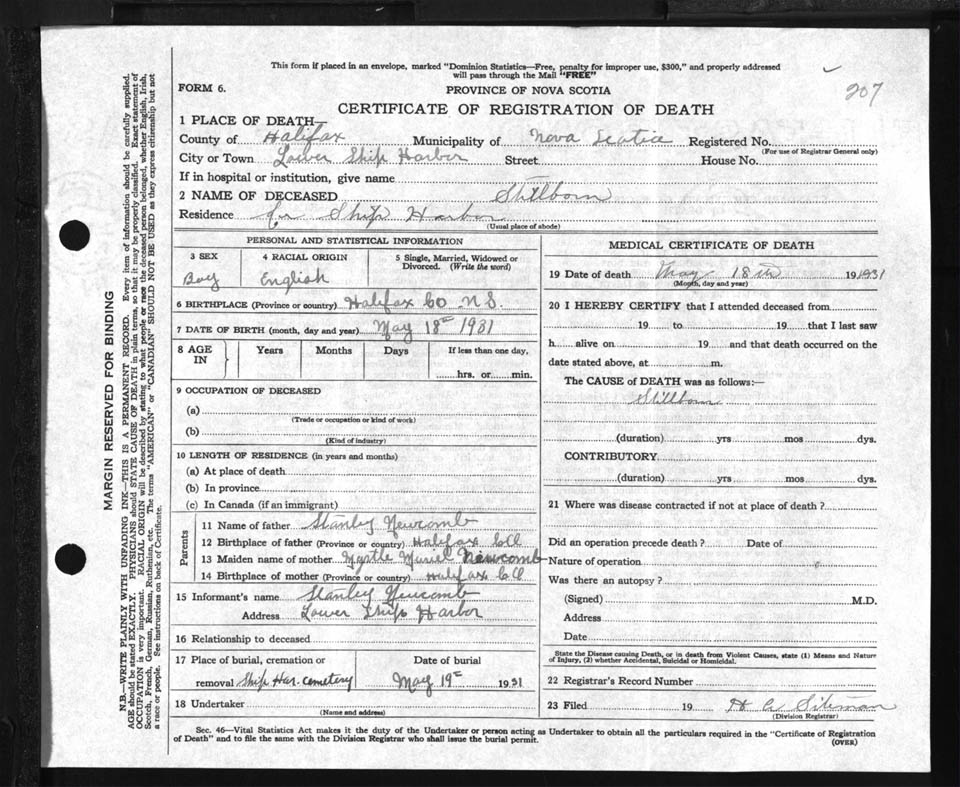 This form if placed in an envelope, marked "Dominion Statistics—Free, penalty for improper use, $300," and properly addressed
will pass through the Mail "FREE"
207
FORM 6.
PROVINCE OF NOVA SCOTIA
CERTIFICATE OF REGISTRATION OF DEATH
1 PLACE OF DEATH—
County of Halifax Municipality of Nova Scotia Registered No.
(For use of Registrar General only)
City or Town Lower Ship Harbor Street House No.
If in hospital or institution, give name
2 NAME OF DECEASED Stillborn
Residence Lr Ship Harbor
(Usual place of abode)
PERSONAL AND STATISTICAL INFORMATION
3 SEX 4 RACIAL ORIGIN 5 Single, Married, Widowed or
Divorced. (Write the word)
Boy English
6 BIRTHPLACE (Province or country) Halifax Co N.S.
7 DATE OF BIRTH (month, day and year) May 18th 1931
8 AGE IN Years Months Days If less than one day,
hrs. or min.
9 OCCUPATION OF DECEASED
(a)
(Trade or occupation or kind of work)
(b)
(Kind of industry)
10 LENGTH OF RESIDENCE (in years and months)
(a) At place of death
(b) In province
(c) In Canada (if an immigrant)
Parents
11 Name of father Stanley Newcomb
12 Birthplace of father (Province or country) Halifax Co
13 Maiden name of mother Myrtle Muriel Newcomb
14 Birthplace of mother (Province or country) Halifax Co
15 Informant's name Stanley Newcomb
Address Lower Ship Harbor
16 Relationship to deceased
17 Place of burial, cremation or Date of burial
removal Ship Har. cemetery May 19th 1931
18 Undertaker
(Name and address)
MEDICAL CERTIFICATE OF DEATH
19 Date of death May 18th 191931
(Month, day and year)
20 I HEREBY CERTIFY that I attended deceased from
19 to 19 that I last saw
h alive on 19 and that death occurred on the
date stated above, at m.
The CAUSE of DEATH was as follows:—
Stillborn
(duration) yrs mos dys.
CONTRIBUTORY
(duration) yrs mos dys.
21 Where was disease contracted if not at place of death?
Did an operation precede death? Date of
Nature of operation
Was there an autopsy?
(Signed) M.D.
Address
Date
State the Disease causing Death, or in death from Violent Causes, state (1) Means and Nature
of Injury, (2) whether Accidental, Suicidal or Homicidal.
22 Registrar's Record Number
23 Filed 19 H A Siteman
(Division Registrar)
Sec. 46—Vital Statistics Act makes it the duty of the Undertaker or person acting as Undertaker to obtain all the particulars required in the "Certificate of Registration
of Death" and to file the same with the Division Registrar who shall issue the burial permit.
(OVER)
MARGIN RESERVED FOR BINDING
N.B.—WRITE PLAINLY WITH UNFADING INK—THIS IS A PERMANENT RECORD. Every item of information should be carefully supplied.
AGE should be stated EXACTLY. PHYSICIANS should STATE CAUSE OF DEATH in plain terms, so that it may be properly classified. Exact statement of
OCCUPATION is very important. RACIAL ORIGIN will be described by stating to what people or race the deceased person belonged, whether English, Irish,
Scotch, French, German, Russian, Ruthenian, etc. The terms "AMERICAN" or "CANADIAN" SHOULD NOT BE USED as they express citizenship but not
a race or people. See instructions on back of Certificate.